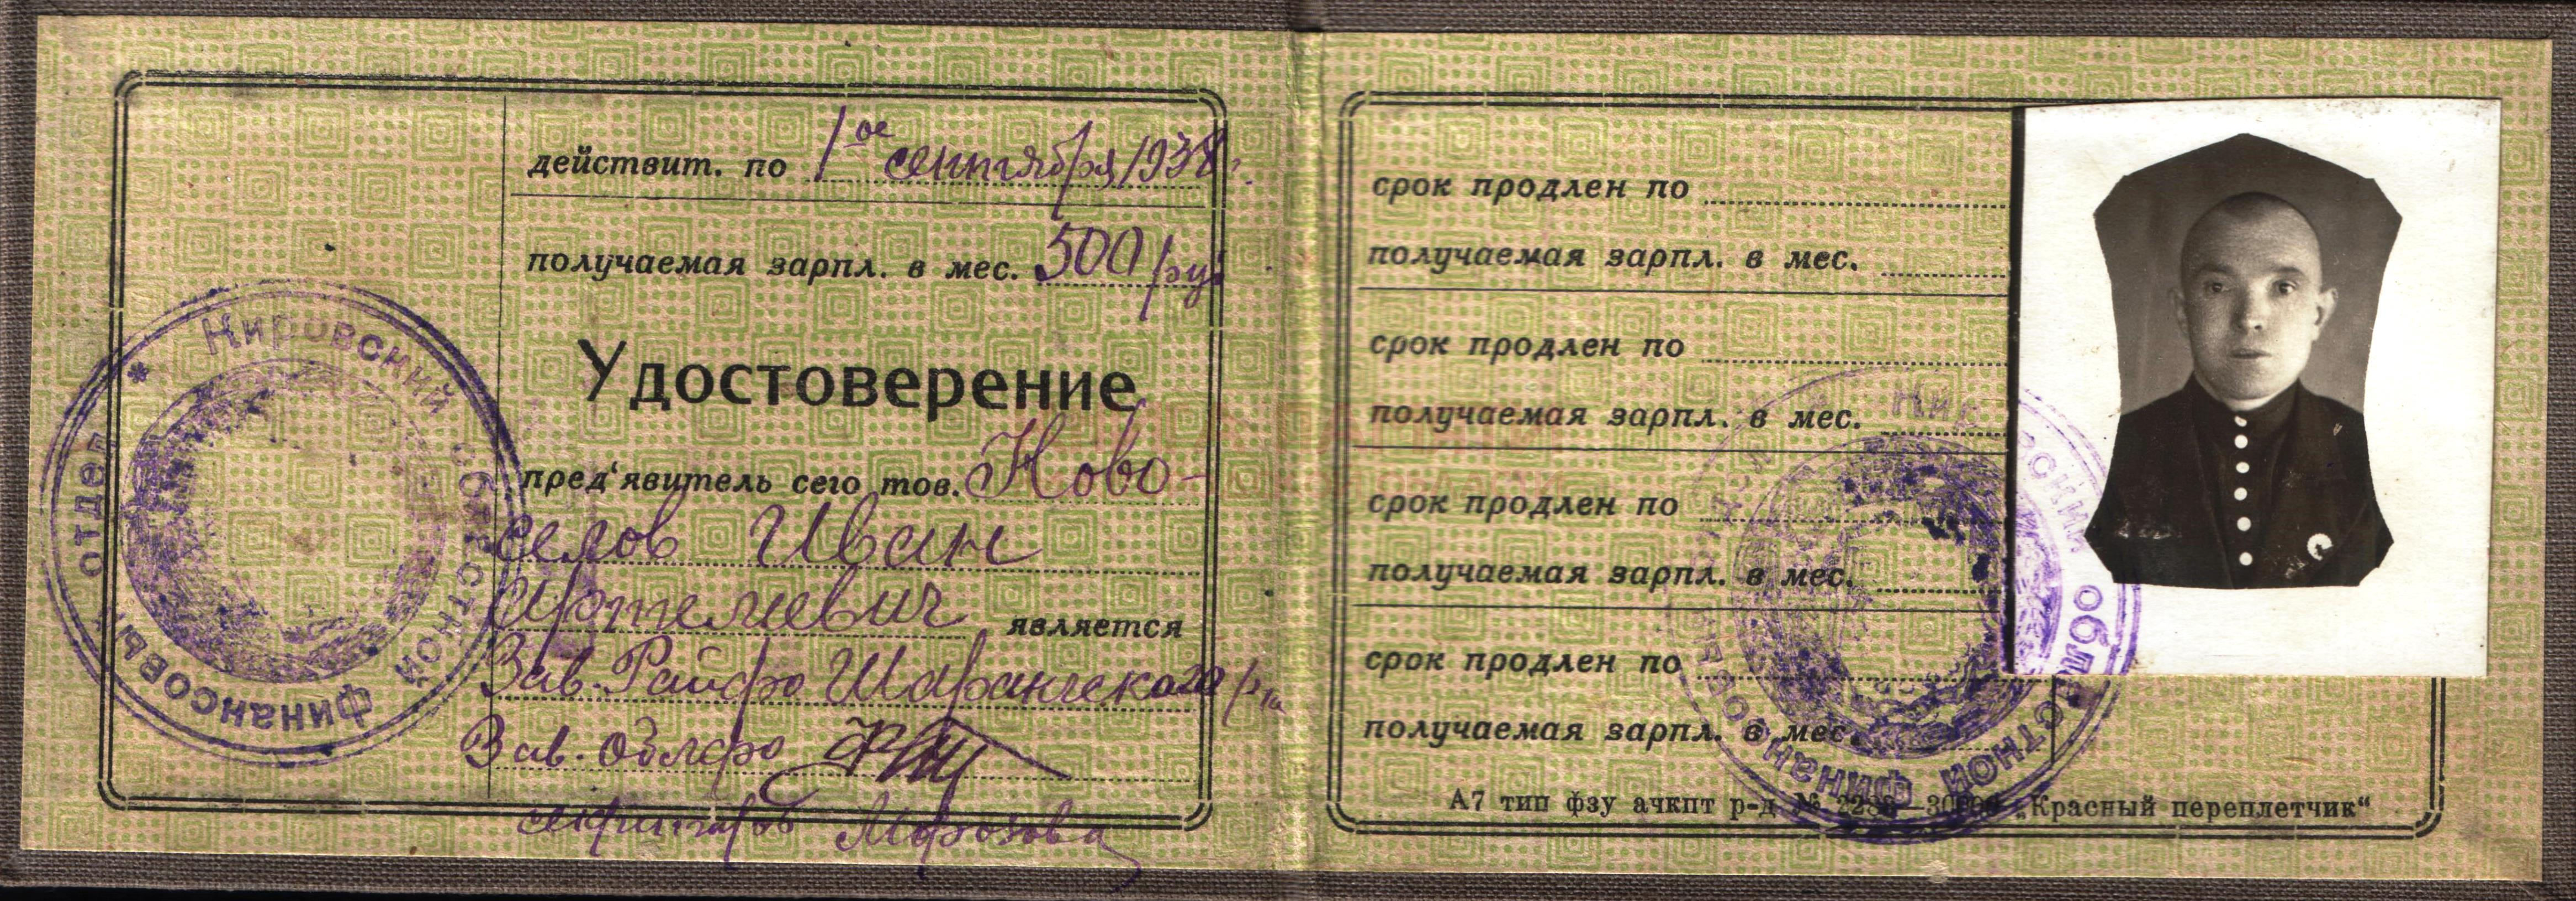 действит. по 1ое сентября 1938 г.
получаемая зарпл. в мес. 500 руб
Удостоверение
пред'явитель сего тов. Ново-
селов Иван
является
Зав. Райфо Шарангского р-на
Зав. облфо
секретарь Морозова
Кировский областной финансовый отдел *
срок продлен по
получаемая зарпл. в мес.
срок продлен по
получаемая зарпл. в мес.
срок продлен по
получаемая зарпл. в мес.
срок продлен по
получаемая зарпл. в мес.
А7 тип фзу ачкпт р-д № „Красный переплетчик“
Кировский областной финансовый